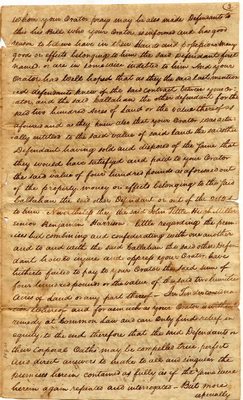 whom your Orator pray may be also made Defendants to
this his Bill who your Orator is informed and has good
reason to believe have in their hands and possession many
goods or effects belonging to him the said Defendant first
named or are in somewise indebted to him And your
Orator has well hoped that as they the said last mention
ed defendants knew of the said contract between your or
ator and the said Callahan the other defendant for the
said two hundred acres of land or the value thereof as
aforesaid as they know also that your Orator was actu
ally intitled to the said value of said land the said other
Defendant having sold and disposed of the same that
they would have satisfied and paid to your Orator
the said value of four hundred pounds as aforesaid out
of the property money or effects belonging to the said
Callahan the said other Defendant or out of the debts
to him Nevertheless they the said John Peter Hugh Miller
senior Benjamin Harrison regarding the prem
ises but combining and confederating with one another
and to and with the said Callahan the said other Defen
dant how to injure and oppress your Orator, have
hitherto failed to pay to your Orator the said sum of
four hundred pounds or the value of the said two hundred
acres of land or any part thereof - In tender
consideration and for as much as your Orator is without
remedy at common law and can only find relief in
equity. to the end therefore that the said Defendants on
their corporal Oaths may be compelled true perfect
and direct answers to make to all and singular the
premises herein contained as fully as if the same were
herein again repeated and interrogated - But more
especially